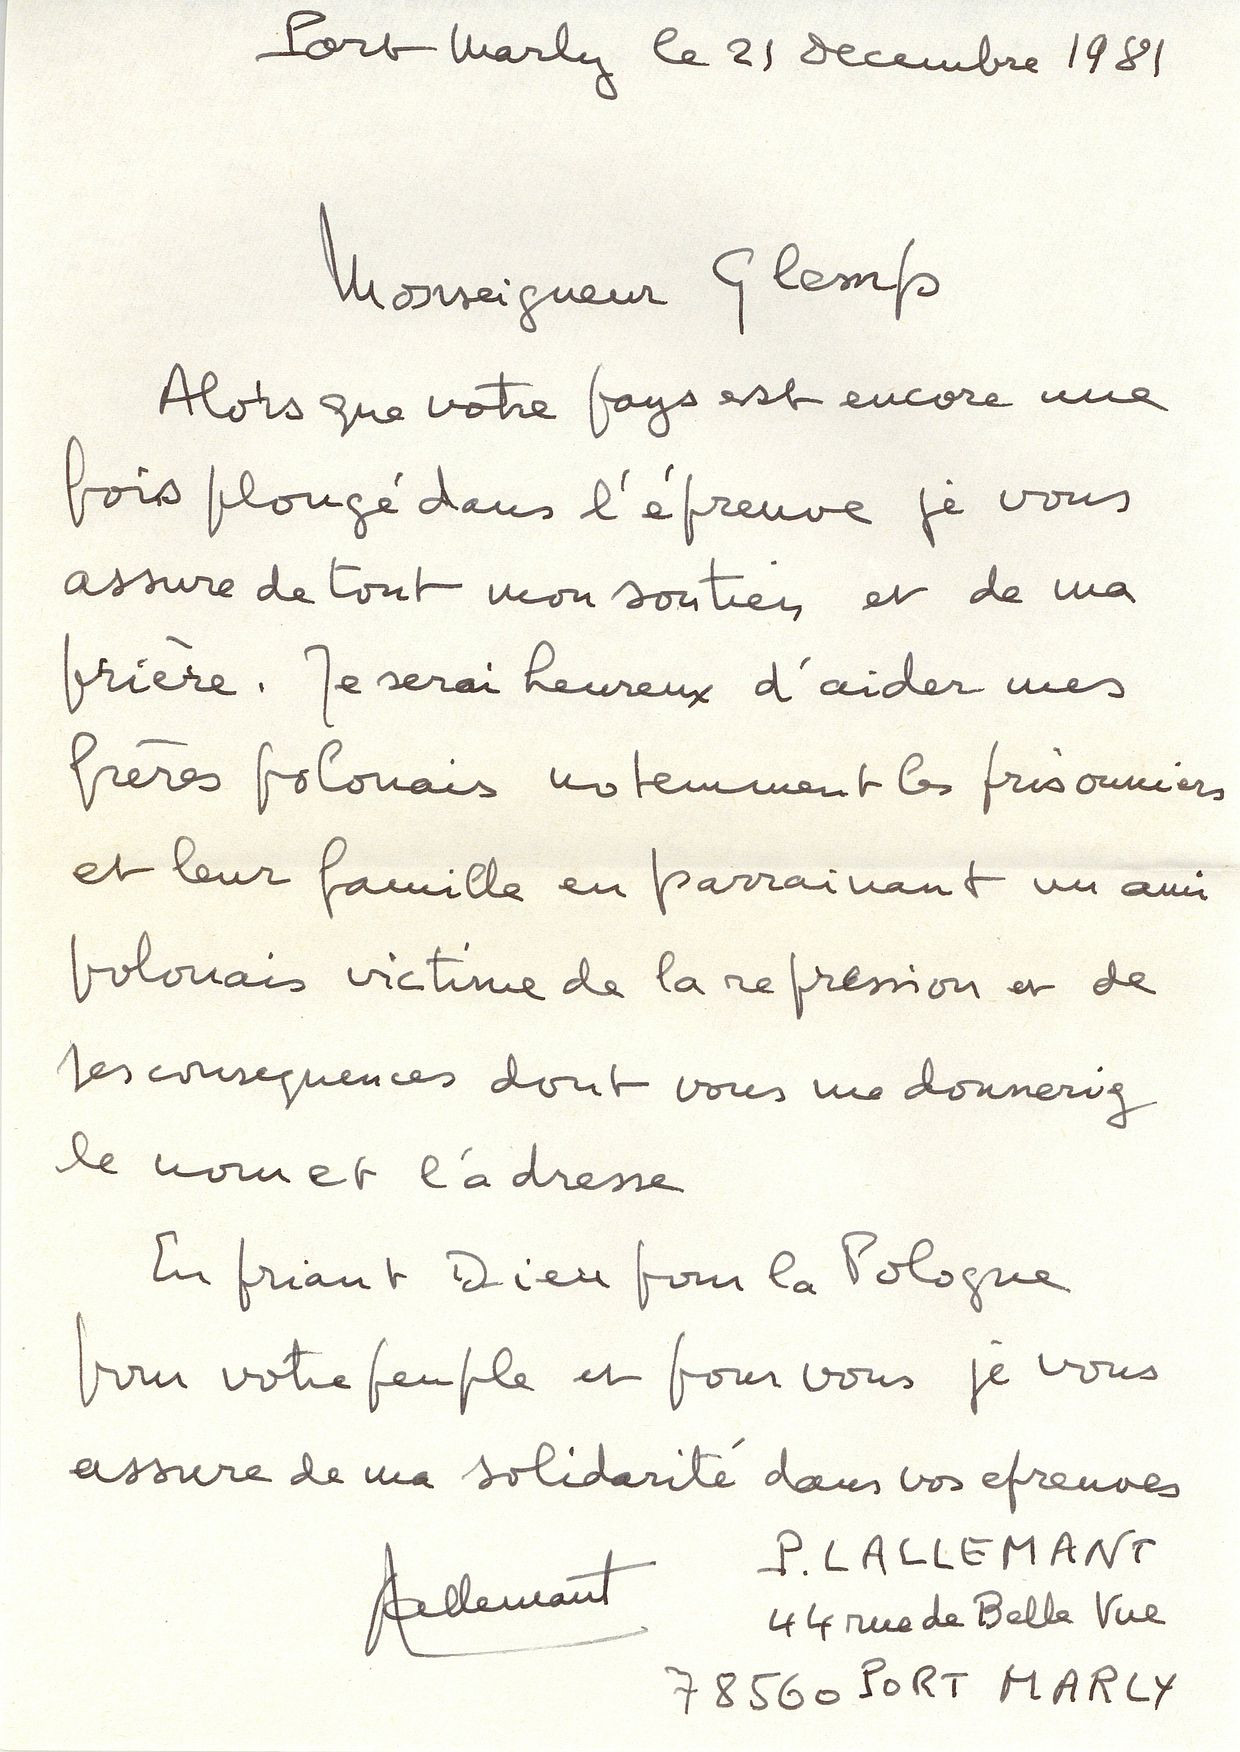 Port Marly le 21 Decembre 1981
Monseigneur Glemp
Alors que votre pays est encore une
fois plongé dans l'épreuve je vous
assure de tout mon soutien et de ma
prière. Je serai heureux d'aider mes
frères polonais notemment les prisonniers
et leur famille en parrainant un ami
polonais victime de la repression et de
ses consequences dont vous me donneriez
le nom et l'adresse
En priant Dieu pour la Pologne
pour votre peuple et pour vous je vous
assure de ma solidarité dans vos epreuves
Lallemant
P. LALLEMANT
44 rue de Belle Vue
78560 PORT MARLY